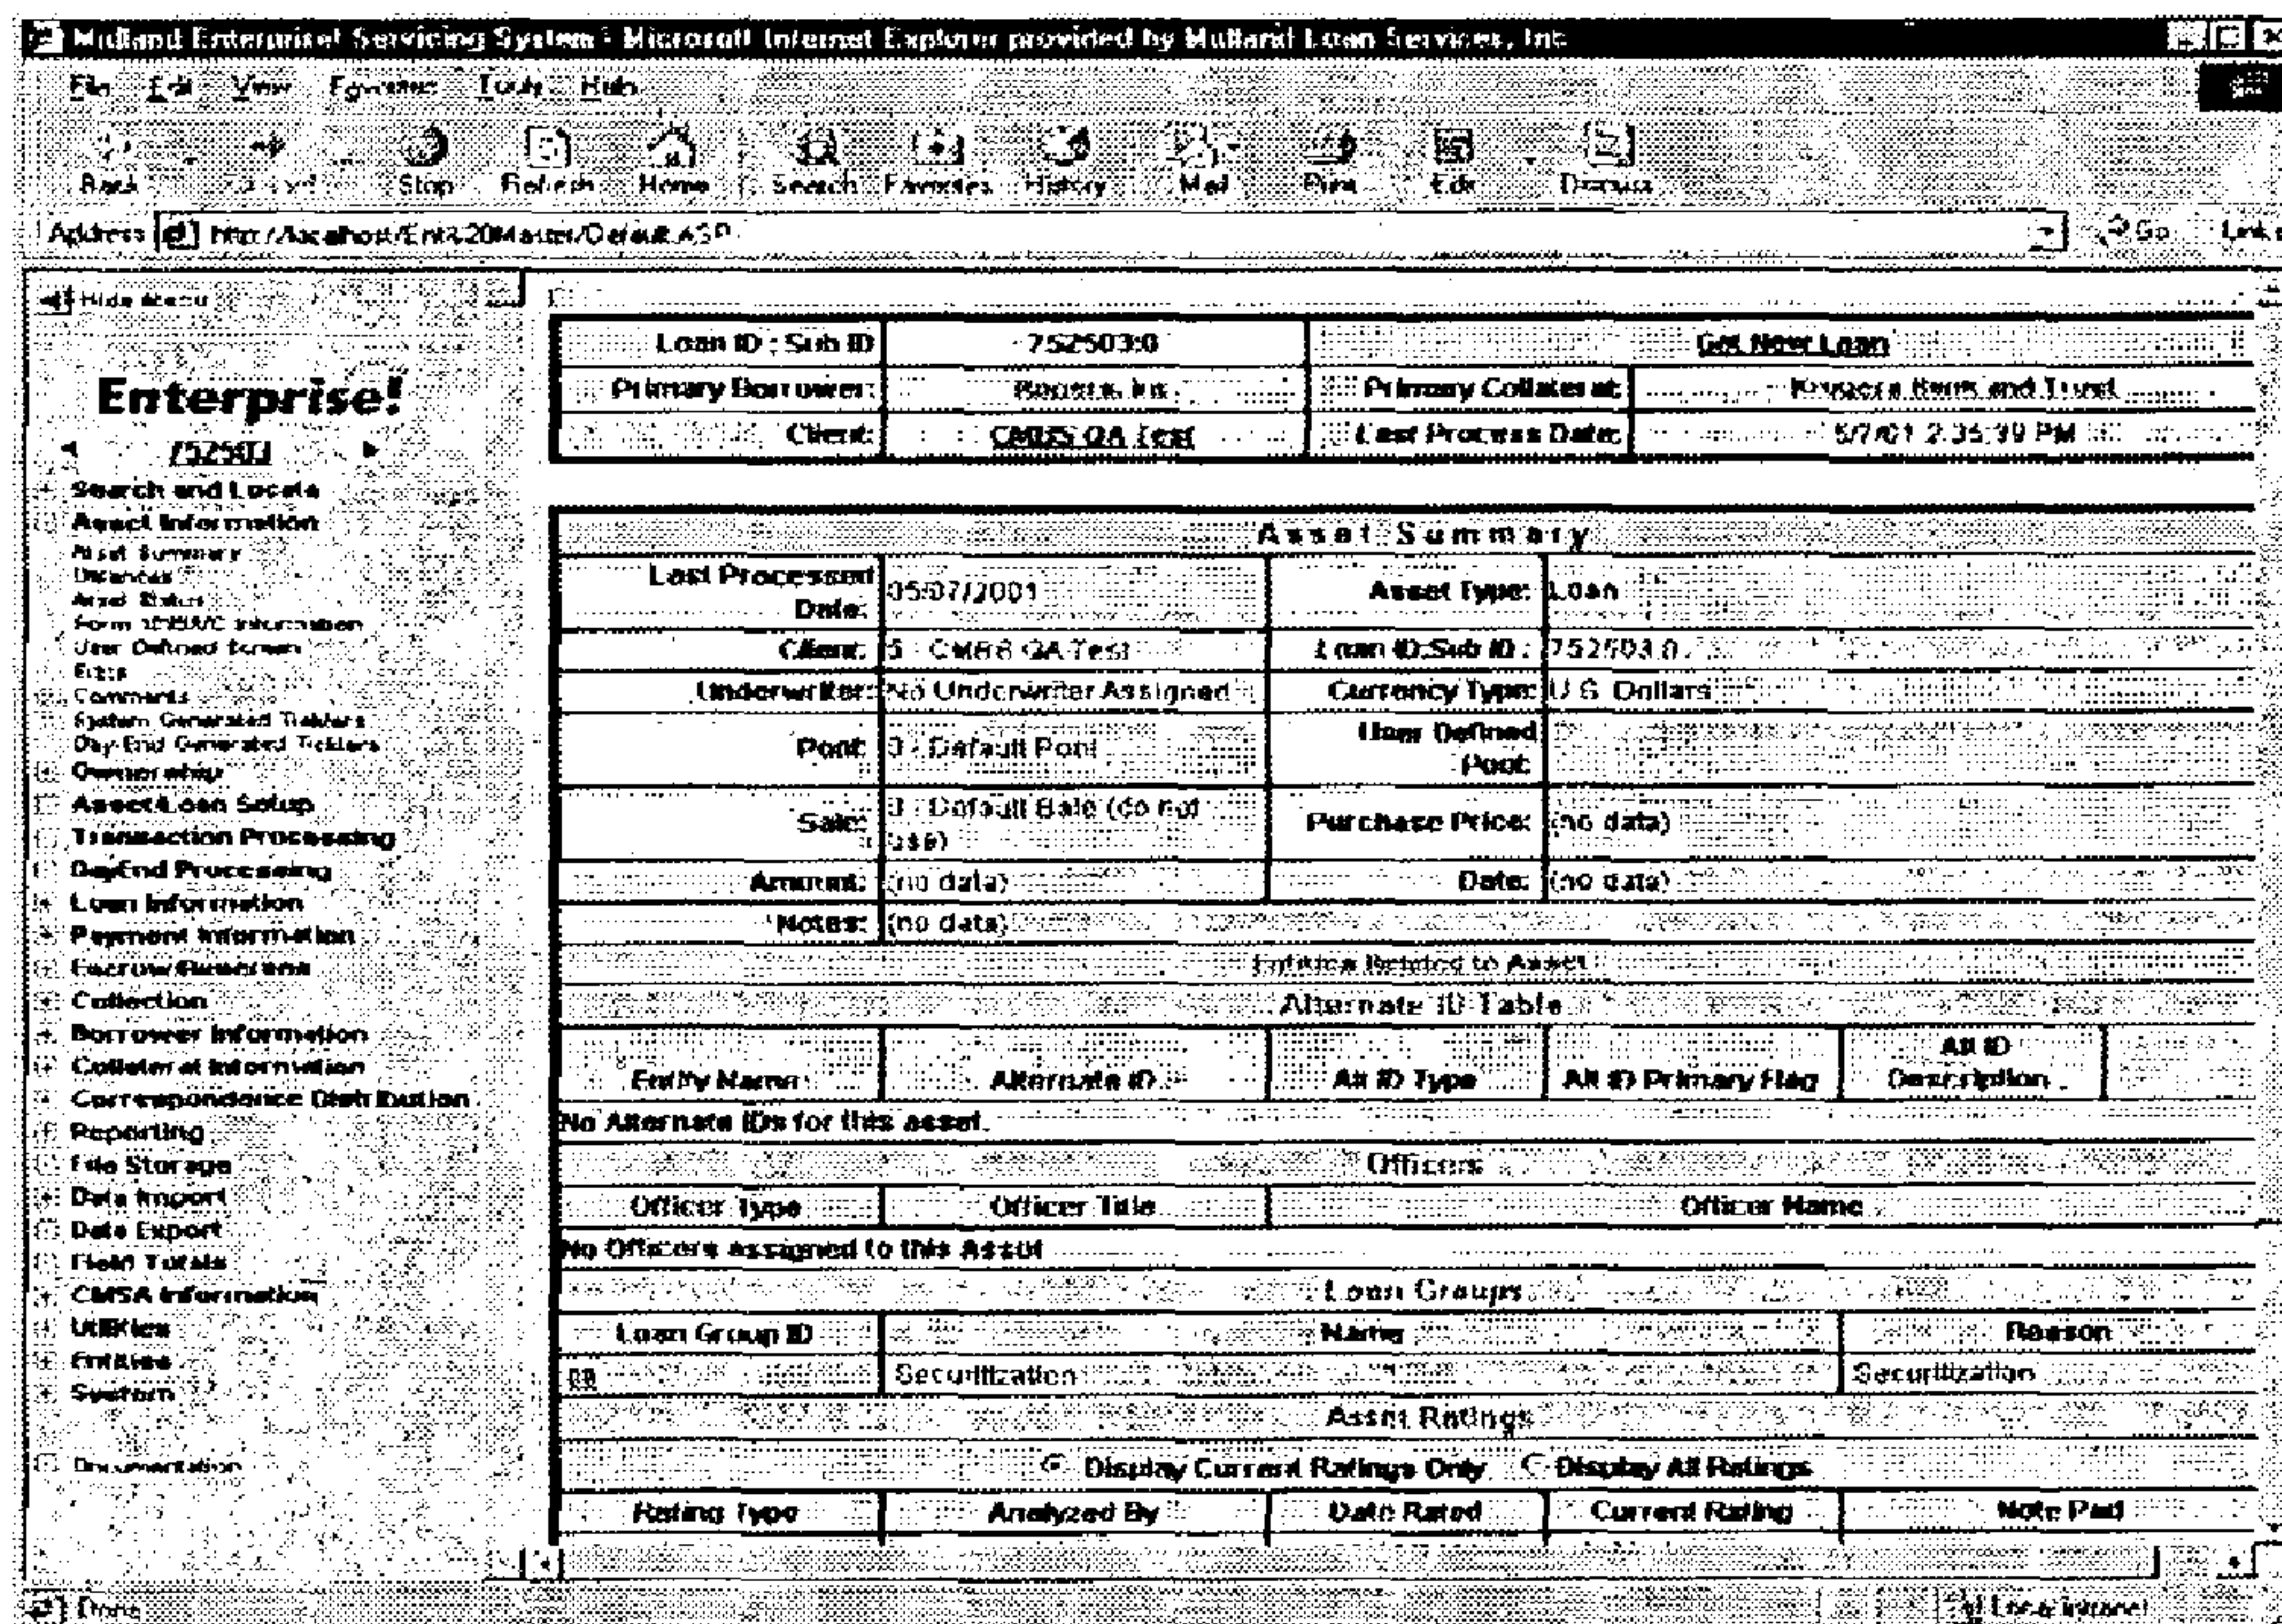 Enterprise! Servicing System - Microsoft Internet Explorer provided by Loan Services, Inc
File Edit View Favorites Tools Help
Back Stop Refresh Home Search Favorites History Mail Print Edit Discuss
Address http://localhost/Ent%20Master/Default.ASP Go Links
Hide Menu
Enterprise!
752503
Search and Locate
Asset Information
Asset Summary
Balances
Asset Status
Form Information
User Defined Screen
Extra
Comments
System Generated Ticklers
Day End Generated Ticklers
Ownership
Asset/Loan Setup
Transaction Processing
DayEnd Processing
Loan Information
Payment Information
Escrow/Reserves
Collection
Borrower Information
Collateral Information
Correspondence Distribution
Reporting
File Storage
Data Import
Data Export
Field Totals
CMSA Information
Utilities
Entities
System
Documentation
Loan ID : Sub ID 752503:0 Get New Loan
Primary Borrower: Primary Collateral: Bank and Trust
Client: CMBS QA Test Last Process Date: 5/7/01 2:35:39 PM
Asset Summary
Last Processed Date: 05/07/2001 Asset Type: Loan
Client: 5 - CMBS QA Test Loan ID:Sub ID : 752503:0
Underwriter: No Underwriter Assigned Currency Type: U.S. Dollars
Pool: 0 - Default Pool User Defined Pool:
Sale: 0 - Default Sale (do not use) Purchase Price: (no data)
Amount: (no data) Date: (no data)
Notes: (no data)
Entities Related to Asset
Alternate ID Table
Entity Name Alternate ID Alt ID Type Alt ID Primary Flag Alt ID Description
No Alternate IDs for this asset.
Officers
Officer Type Officer Title Officer Name
No Officers assigned to this Asset
Loan Groups
Loan Group ID Name Reason
Securitization Securitization
Asset Ratings
Display Current Ratings Only Display All Ratings
Rating Type Analyzed By Date Rated Current Rating Note Pad
Done Local intranet